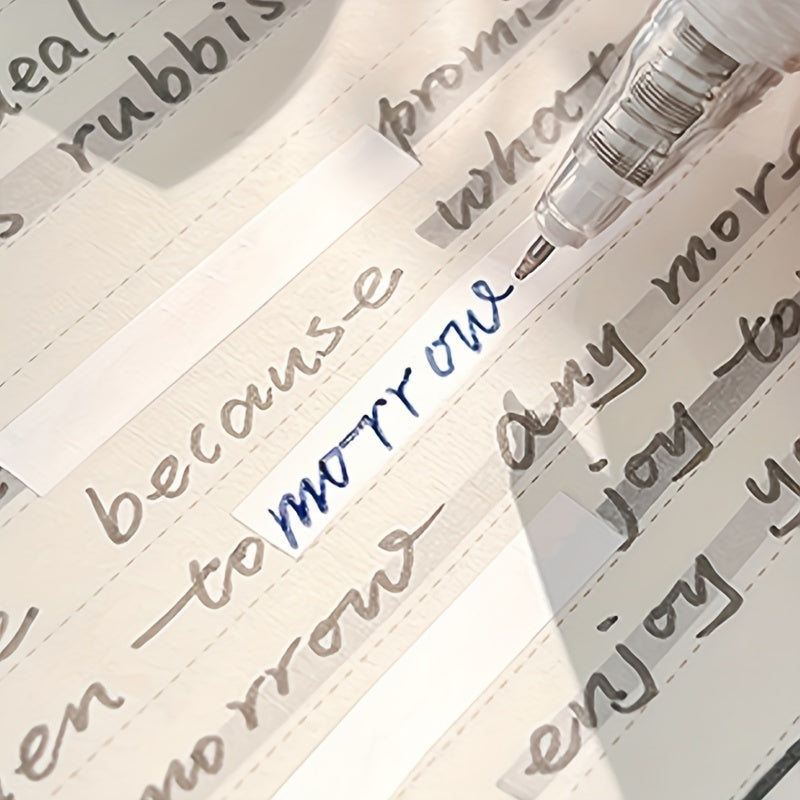 deal
rubbis
promis
because what
en tomorrow
morrow any more
joy to
enjoy yo